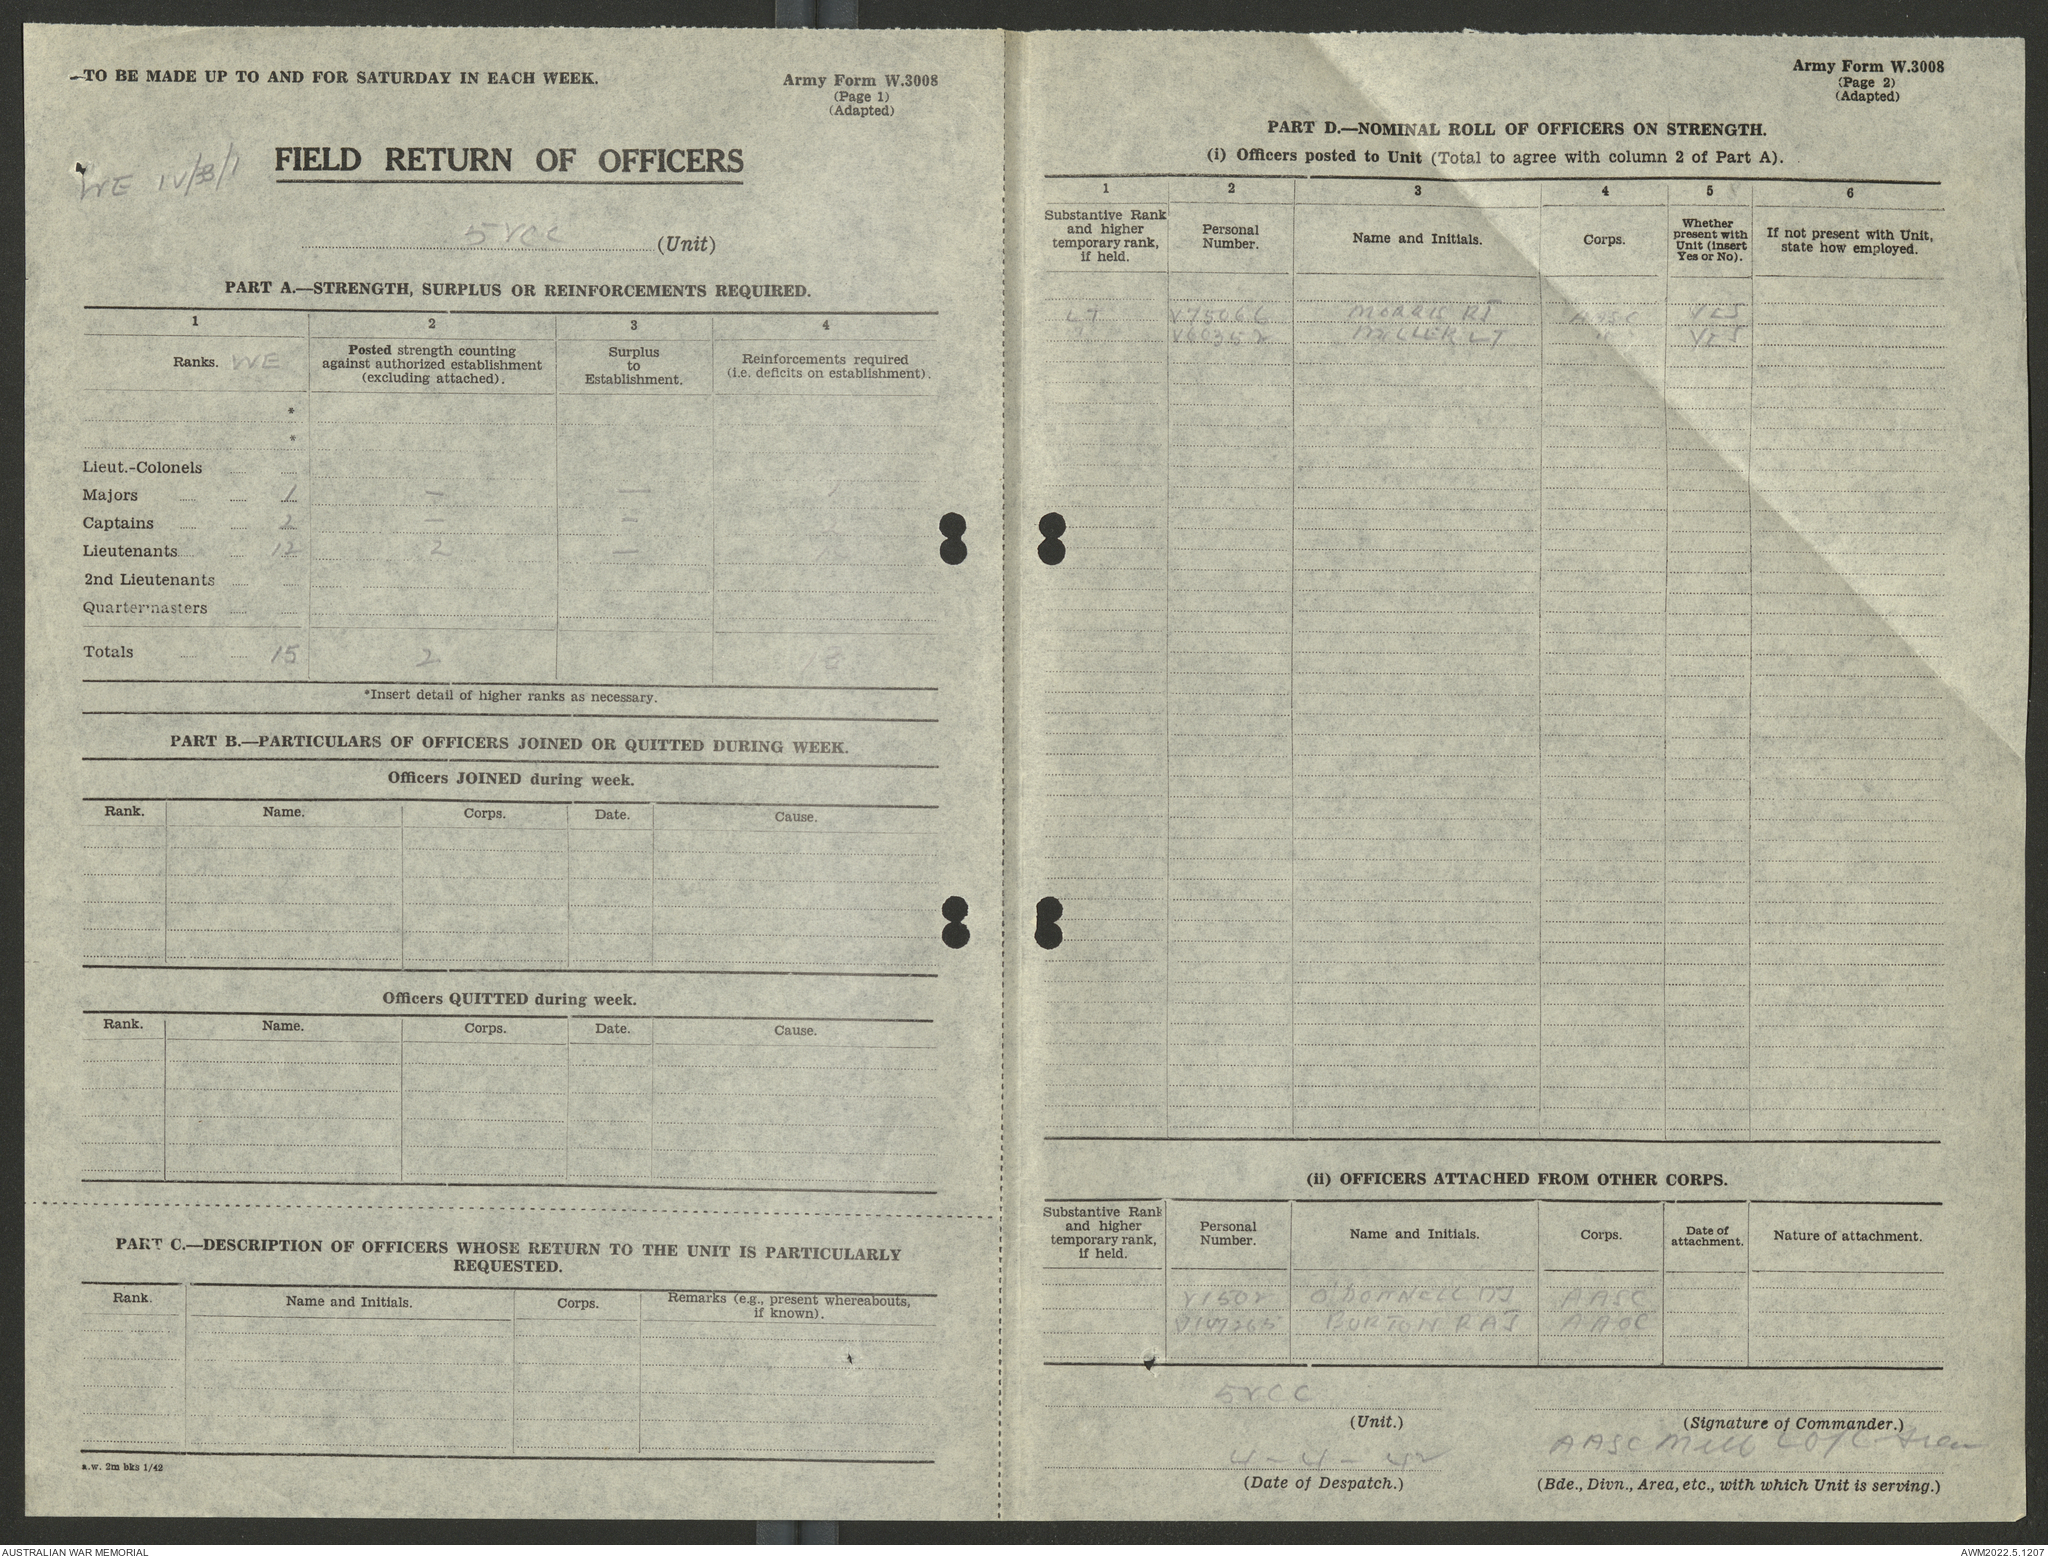 TO BE MADE UP TO AND FOR SATURDAY IN EACH WEEK.
Army Form W.3008
(Page 1)
(Adapted)
WE IV/33/1
FIELD RETURN OF OFFICERS
5 VCC (Unit)
PART A.—STRENGTH, SURPLUS OR REINFORCEMENTS REQUIRED.
1 2 3 4
Ranks. WE
Posted strength counting against authorized establishment (excluding attached).
Surplus to Establishment.
Reinforcements required (i.e. deficits on establishment).
*
*
Lieut.-Colonels
Majors 1 — — 1
Captains 2 — —
Lieutenants 12 2 —
2nd Lieutenants
Quartermasters
Totals 15 2 13
*Insert detail of higher ranks as necessary.
PART B.—PARTICULARS OF OFFICERS JOINED OR QUITTED DURING WEEK.
Officers JOINED during week.
Rank. Name. Corps. Date. Cause.
Officers QUITTED during week.
Rank. Name. Corps. Date. Cause.
PART C.—DESCRIPTION OF OFFICERS WHOSE RETURN TO THE UNIT IS PARTICULARLY
REQUESTED.
Rank. Name and Initials. Corps. Remarks (e.g., present whereabouts, if known).
a.w. 2m bks 1/42
Army Form W.3008
(Page 2)
(Adapted)
PART D.—NOMINAL ROLL OF OFFICERS ON STRENGTH.
(i) Officers posted to Unit (Total to agree with column 2 of Part A).
1 2 3 4 5 6
Substantive Rank and higher temporary rank, if held.
Personal Number.
Name and Initials.
Corps.
Whether present with Unit (insert Yes or No).
If not present with Unit, state how employed.
LT V75066 MORRIS RJ AASC YES
" V60352 MILLER LT " YES
(ii) OFFICERS ATTACHED FROM OTHER CORPS.
Substantive Rank and higher temporary rank, if held.
Personal Number.
Name and Initials.
Corps.
Date of attachment.
Nature of attachment.
V1502 O'DONNELL AASC
V147265 BURTON RAJ AAOC
5 VCC
(Unit.)
(Signature of Commander.)
4-4-42
AASC Melb
(Date of Despatch.)
(Bde., Divn., Area, etc., with which Unit is serving.)
AUSTRALIAN WAR MEMORIAL
AWM2022.5.1207